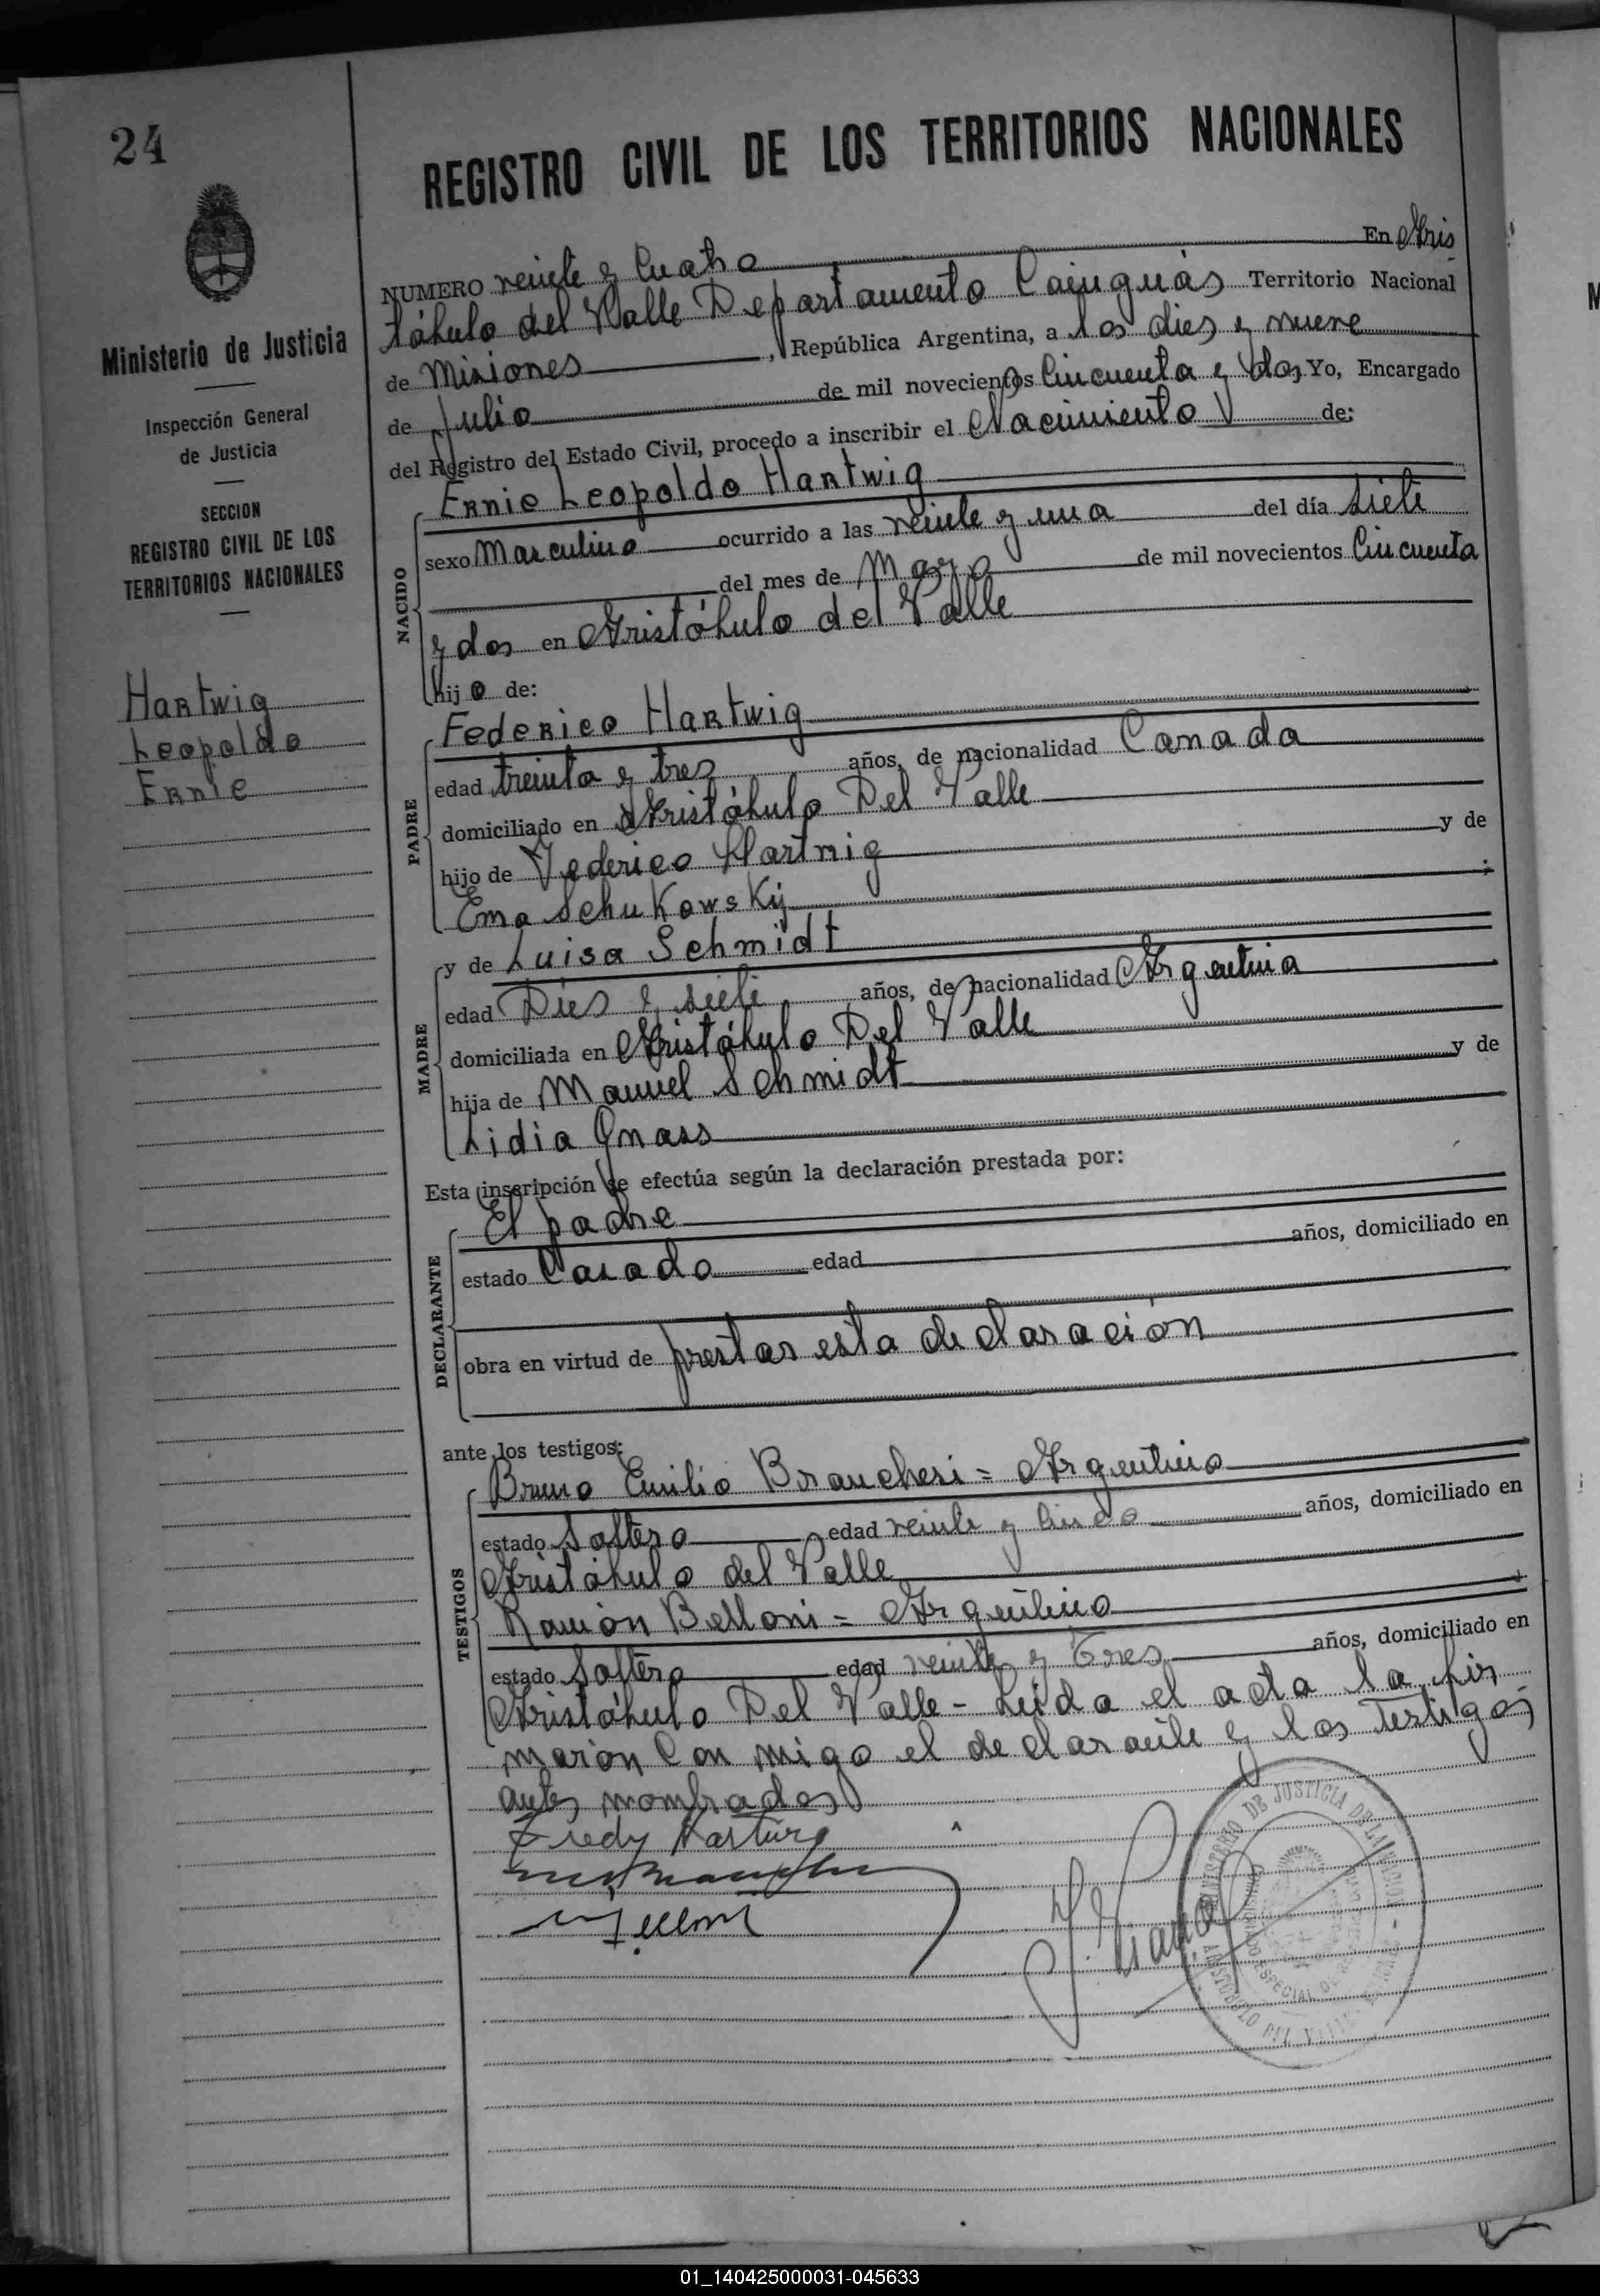 24
Ministerio de Justicia
Inspección General
de Justicia
SECCION
REGISTRO CIVIL DE LOS
TERRITORIOS NACIONALES
Hartwig
Leopoldo
Ernie
REGISTRO CIVIL DE LOS TERRITORIOS NACIONALES
NUMERO veinte y Cuatro En Aris
tóbulo del Valle Departamento Cainguás Territorio Nacional
de Misiones, República Argentina, a los dies y nueve
de Julio de mil novecientos Cincuenta y dos Yo, Encargado
del Registro del Estado Civil, procedo a inscribir el Nacimiento de:
NACIDO
Ernie Leopoldo Hartwig
sexo Masculino ocurrido a las veinte y una del día siete
del mes de Mayo de mil novecientos Cincuenta
y dos en Aristóbulo del Valle
hijo de:
PADRE
Federico Hartwig
edad treinta y tres años, de nacionalidad Canada
domiciliado en Aristóbulo Del Valle
hijo de Federico Hartwig y de
Ema Schukowskij;
MADRE
y de Luisa Schmidt
edad Dies y siete años, de nacionalidad Argentina
domiciliada en Aristóbulo Del Valle
hija de Manuel Schmidt y de
Lidia Gnass
Esta inscripción se efectúa según la declaración prestada por:
DECLARANTE
El padre
estado Casado edad años, domiciliado en
obra en virtud de prestar esta declaración
ante los testigos:
TESTIGOS
Bruno Emilio Branchesi = Argentino
estado Soltero edad veinte y cinco años, domiciliado en
Aristóbulo del Valle
Ramón Belloni = Argentino
estado Soltero edad veinte y Tres años, domiciliado en
Aristóbulo Del Valle - Leida el acta la fir
marón Con migo el declarante y los Testigos
antes nombrados
Fredy Hartwig
Belloni
MINISTERIO DE JUSTICIA DE LA NACION
ESPECIAL DE
ARISTOBULO DEL VALLE
01_140425000031-045633